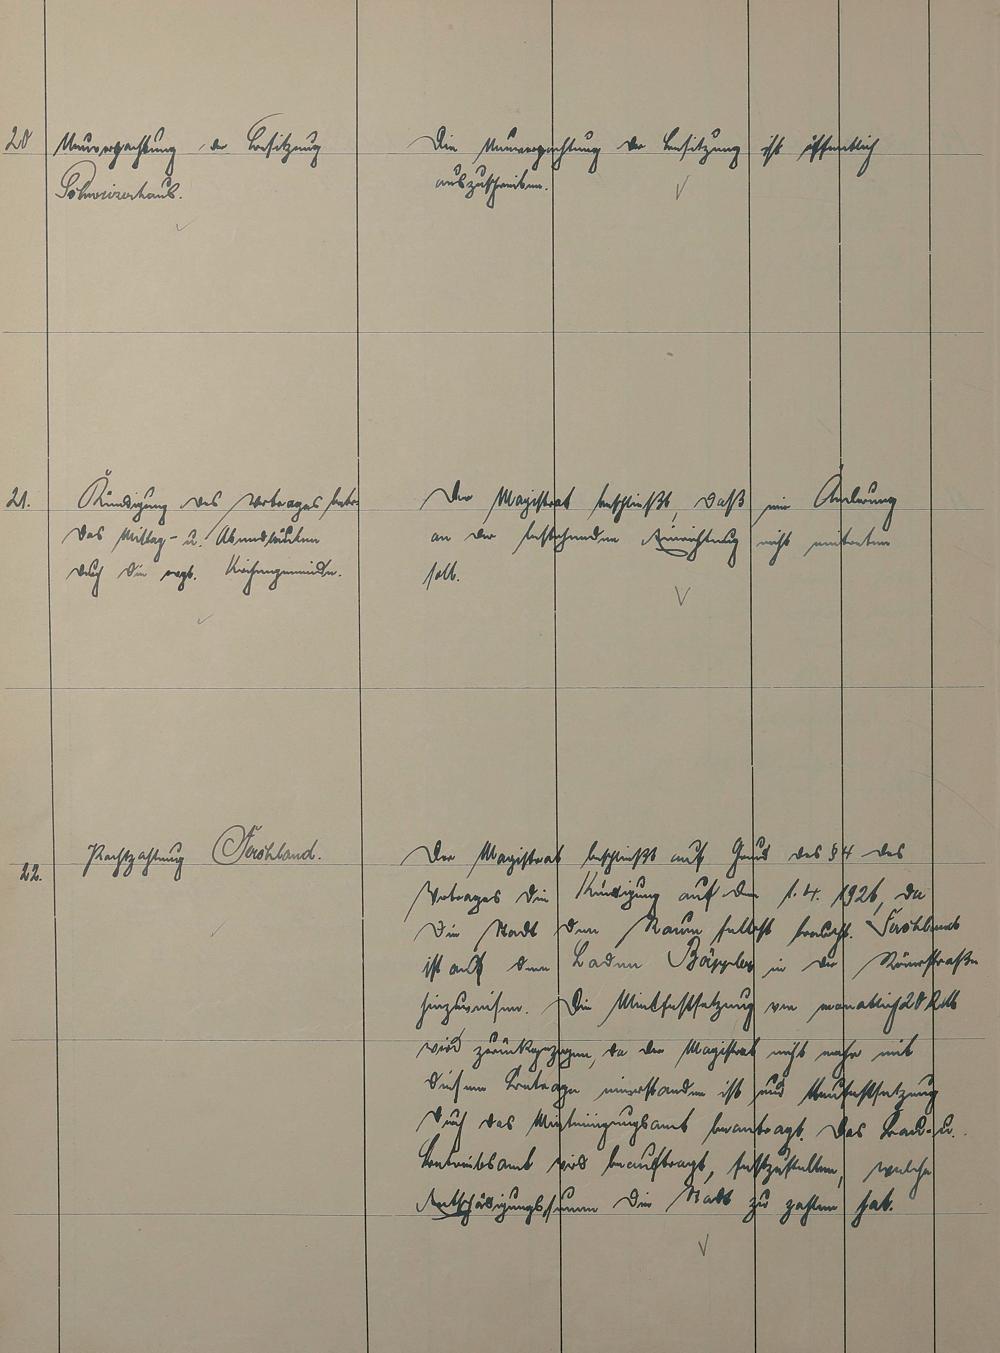 20
Neuverpachtung der Besitzung
Schweizerhaus.
Die Neuverpachtung der Besitzung ist öffentlich
auszuschreiben.
21.
Kündigung des Vertrages betr.
das Mittag- u. Abendläuten
durch die evgl. Kirchengemeinde.
Der Magistrat beschließt, daß eine Änderung
an der bestehenden Einrichtung nicht eintreten
soll.
22.
Pachtzahlung Ferchland.
Der Magistrat beschließt auf Grund des § 4 des
Vertrages die Kündigung auf den 1.4. 1926, da
die Stadt den Raum selbst braucht.
ist auf den Laden in der Römerstraße
hinzuweisen. Die Mietfestsetzung von monatlich 20 RM
wird zurückgezogen, da der Magistrat nicht mehr mit
diesem Betrage einverstanden ist und Neufestsetzung
durch das Mieteinigungsamt beantragt. Das Bau- u.
Betriebsamt wird beauftragt, festzustellen, welche
Entschädigungssumme die Stadt zu zahlen hat.